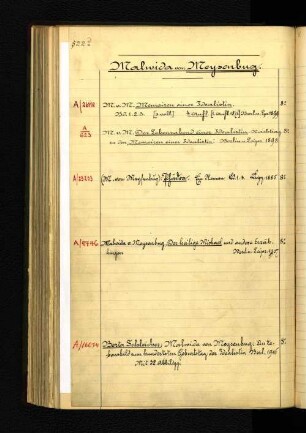 Malwida von Meysenbug.
M. v. M. Memoiren einer Idealistin. 8°
Bd. 1. 2. 3. Berlin
A
M. v. M. Der Lebensabend einer Idealistin. Nachtrag 8°
zu den Memoiren einer Idealistin. Berlin-Leipz. 1898
(M. von Meysenbug): Phädra. Ein Roman Bd. 1-3. Leipz. 1885 8°
Malwida v. Meysenbug. Der heilige Michael und andere Erzäh- 8°
lungen Berlin Leipz.
Berta Schleicher: Malwida von Meysenbug. Ein Le- 8°
bensbild zum hundertsten Geburtstag der Idealistin. Berl. 1916
Mit